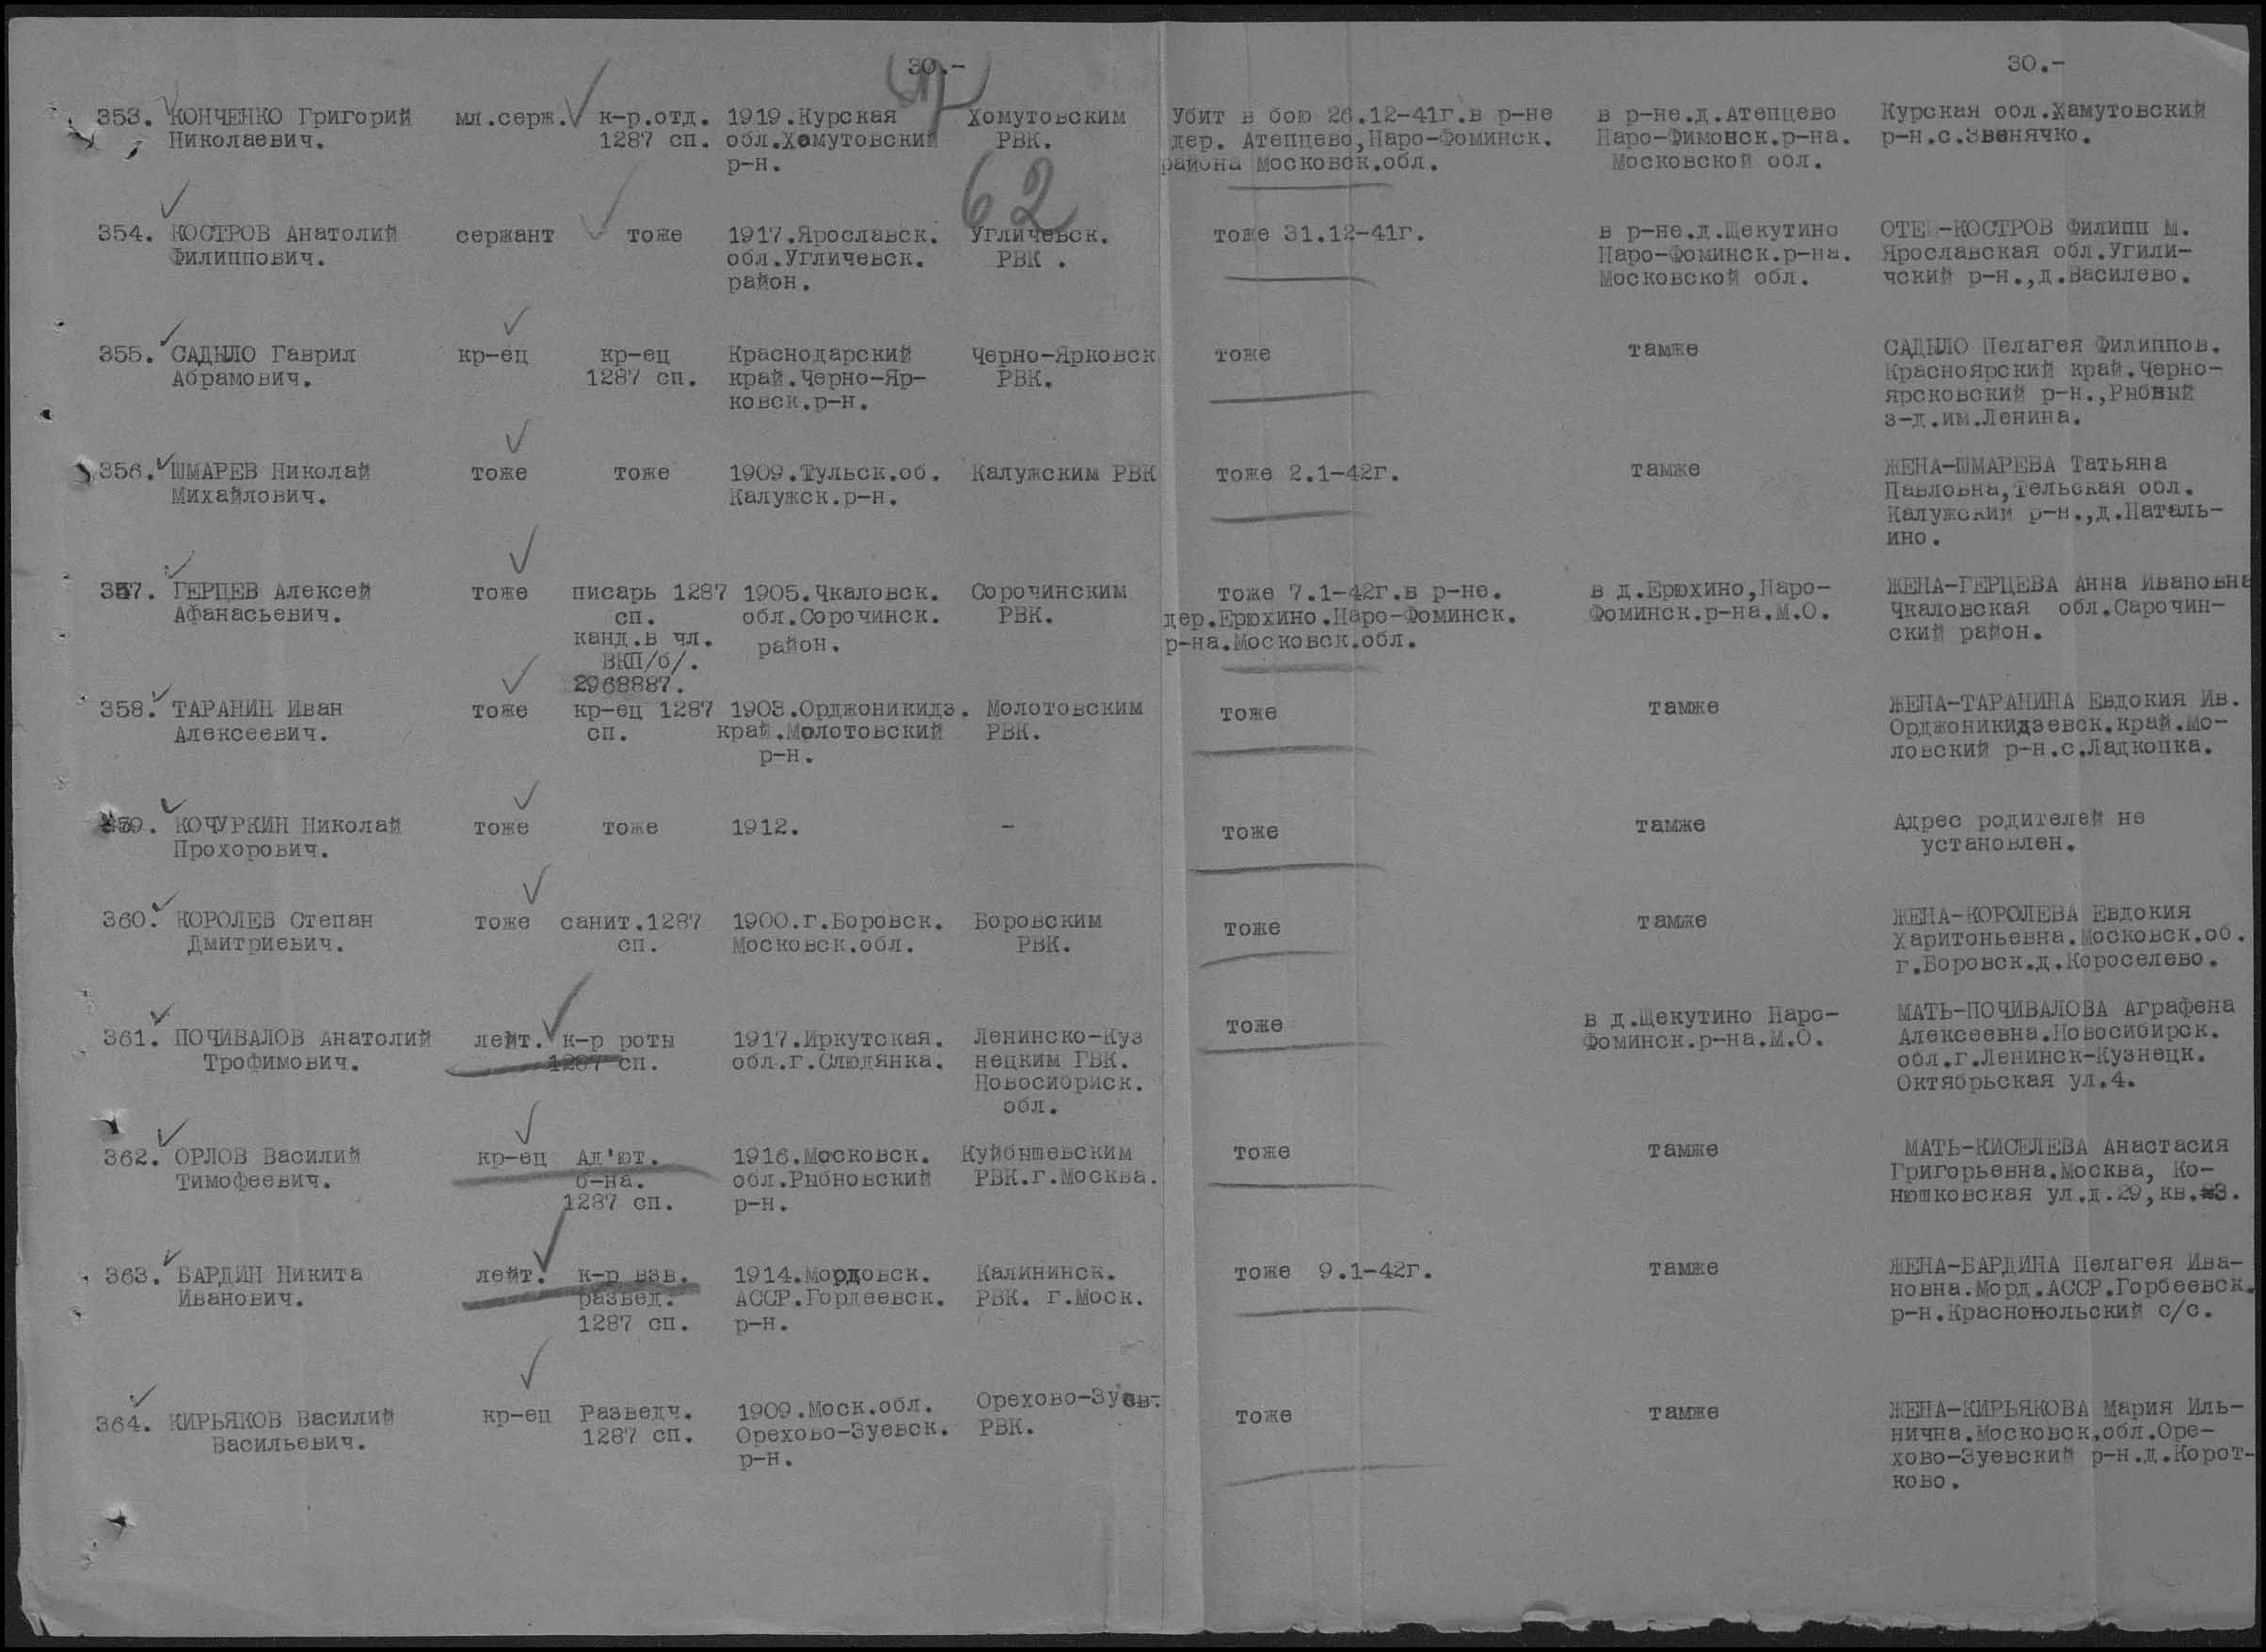 30.-
30.-
62
353. КОНЧЕНКО Григорий мл.серж. к-р.отд. 1919.Курская Хомутовским Убит в бою 26.12-41г.в р-не в р-не.д.Атепцево Курская обл.Хамутовский
Николаевич. 1287 сп. обл.Хомутовский РВК. дер. Атепцево,Наро-Фоминск. Наро-Фимонск.р-на. р-н.с.Звенячко.
р-н. района Московск.обл. Московской обл.
354. КОСТРОВ Анатолий сержант тоже 1917.Ярославск. Угличевск. тоже 31.12-41г. в р-не.д.Щекутино ОТЕЦ-КОСТРОВ Филипп М.
Филиппович. обл.Угличевск. РВК . Наро-Фоминск.р-на. Ярославская обл.Угили-
район. Московской обл. чский р-н.,д.Василево.
355. САДЫЛО Гаврил кр-ец кр-ец Краснодарский Черно-Ярковск тоже тамже САДЫЛО Пелагея Филиппов.
Абрамович. 1287 сп. край.Черно-Яр- РВК. Красноярский край.Черно-
ковск.р-н. ярсковский р-н.,Рыбный
з-д.им.Ленина.
356. ШМАРЕВ Николай тоже тоже 1909.Тульск.об. Калужским РВК тоже 2.1-42г. тамже ЖЕНА-ШМАРЕВА Татьяна
Михайлович. Калужск.р-н. Павловна,Тельская обл.
Калужский р-н.,д.Наталь-
ино.
357. ГЕРЦЕВ Алексей тоже писарь 1287 1905.Чкаловск. Сорочинским тоже 7.1-42г.в р-не. в д.Ерюхино,Наро- ЖЕНА-ГЕРЦЕВА Анна Ивановна
Афанасьевич. сп. обл.Сорочинск. РВК. дер.Ерюхино.Наро-Фоминск. Фоминск.р-на.М.О. Чкаловская обл.Сарочин-
канд.в чл. район. р-на.Московск.обл. ский район.
ВКП/б/.
2968887.
358. ТАРАНИН Иван тоже кр-ец 1287 1903.Орджоникидз. Молотовским тоже тамже ЖЕНА-ТАРАНИНА Евдокия Ив.
Алексеевич. сп. край.Молотовский РВК. Орджоникидзевск.край.Мо-
р-н. ловский р-н.с.Ладкопка.
359. КОЧУРКИН Николай тоже тоже 1912. - тоже тамже Адрес родителей не
Прохорович. установлен.
360. КОРОЛЕВ Степан тоже санит.1287 1900.г.Боровск. Боровским тоже тамже ЖЕНА-КОРОЛЕВА Евдокия
Дмитриевич. сп. Московск.обл. РВК. Харитоньевна.Московск.об.
г.Боровск.д.Короселево.
361. ПОЧИВАЛОВ Анатолий лейт. к-р роты 1917.Иркутская. Ленинско-Куз тоже в д.Щекутино Наро- МАТЬ-ПОЧИВАЛОВА Аграфена
Трофимович. 1287 сп. обл.г.Слюдянка. нецким ГВК. Фоминск.р-на.М.О. Алексеевна.Новосибирск.
Новосибриск. обл.г.Ленинск-Кузнецк.
обл. Октябрьская ул.4.
362. ОРЛОВ Василий кр-ец Ад'ют. 1916.Московск. Куйбышевским тоже тамже МАТЬ-КИСЕЛЕВА Анастасия
Тимофеевич. б-на. обл.Рыбновский РВК.г.Москва. Григорьевна.Москва, Ко-
1287 сп. р-н. нюшковская ул.д.29,кв.3.
363. БАРДИН Никита лейт. к-р взв. 1914.Мордовск. Калининск. тоже 9.1-42г. тамже ЖЕНА-БАРДИНА Пелагея Ива-
Иванович. развед. АССР.Гордеевск. РВК. г.Моск. новна.Морд.АССР.Горбеевск.
1287 сп. р-н. р-н.Краснопольский с/с.
364. КИРЬЯКОВ Василий кр-ец Разведч. 1909.Моск.обл. Орехово-Зуев- тоже тамже ЖЕНА-КИРЬЯКОВА Мария Иль-
Васильевич. 1287 сп. Орехово-Зуевск. РВК. нична.Московск.обл.Оре-
р-н. хово-Зуевский р-н.д.Корот-
ково.